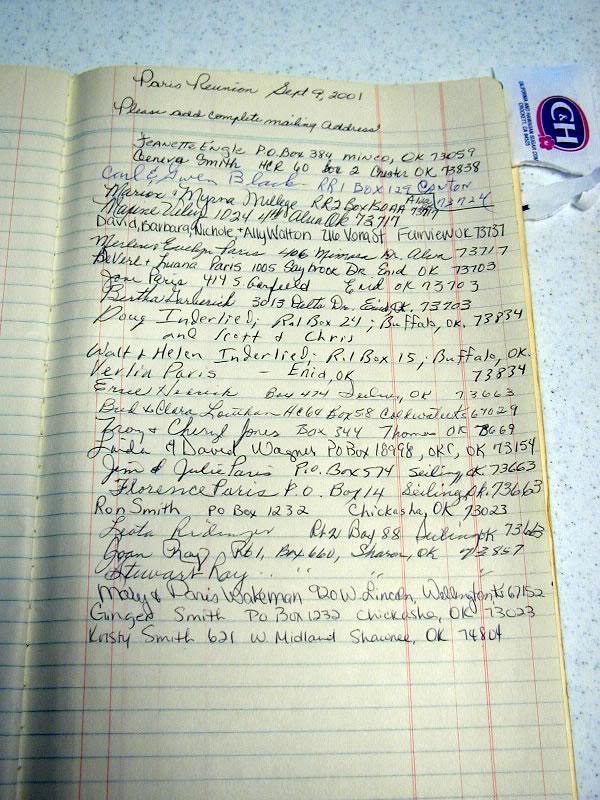 Paris Reunion Sept 9, 2001
Please add complete mailing Address
Jeanette Engle P.O. Box 384 minco, OK 73059
Geneva Smith HCR 60 Box 2 Chester OK. 73838
Carl & Gwen Black RR1 Box 129 Canton 73724
Marion & Myrna RR2 Box 150AA Alva 73717
Maxine 1024 4th Alva Ok 73717
David, Barbara, Nichole, + Ally Walton 716 Vong St Fairview OK 73737
Merlin & Evelyn Paris 406 Mimosa Dr. Alva 73717
DeVerl + Luana Paris 1005 Saybrook Dr Enid OK 73703
Jane Paris 414 S. Garfield Enid OK 73703
Bertha 3013 Delta Dr., Enid, OK. 73703
Doug Inderlied; Rt 1 Box 24; Buffalo, OK. 73834
and Scott & Chris
Walt & Helen Inderlied; Rt. 1 Box 15, Buffalo, OK.
Verlin Paris - Enid, OK 73834
Ernie Box 474 Seiling, OK 73663
Bud & Clara HC64 Box 58 Coldwater Ks 67029
Troy & Cheryl Jones Box 344 Thomas OK 73669
Linda & David Wagner PO Box 18998, OKC, OK 73154
Jim & Julie Paris P.O. Box 574 Seiling, OK. 73663
Florence Paris P.O. Box 14 Seiling, Ok. 73663
Ron Smith PO Box 1232 Chickasha, OK 73023
Leota Rt 2 Box 88 Seiling OK 73663
Joan Ray Rt 1, Box 660, Sharon, OK 73857
Stewart Ray " " " "
Mary & Paris Wakeman 920 W. Lincoln, Wellington Ks 67152
Ginger Smith PO Box 1232 Chickasha, OK 73023
Kristy Smith 621 W Midland Shawnee, OK 74804
C&H
CALIFORNIA AND HAWAIIAN SUGAR COM
CROCKETT, CA 94525